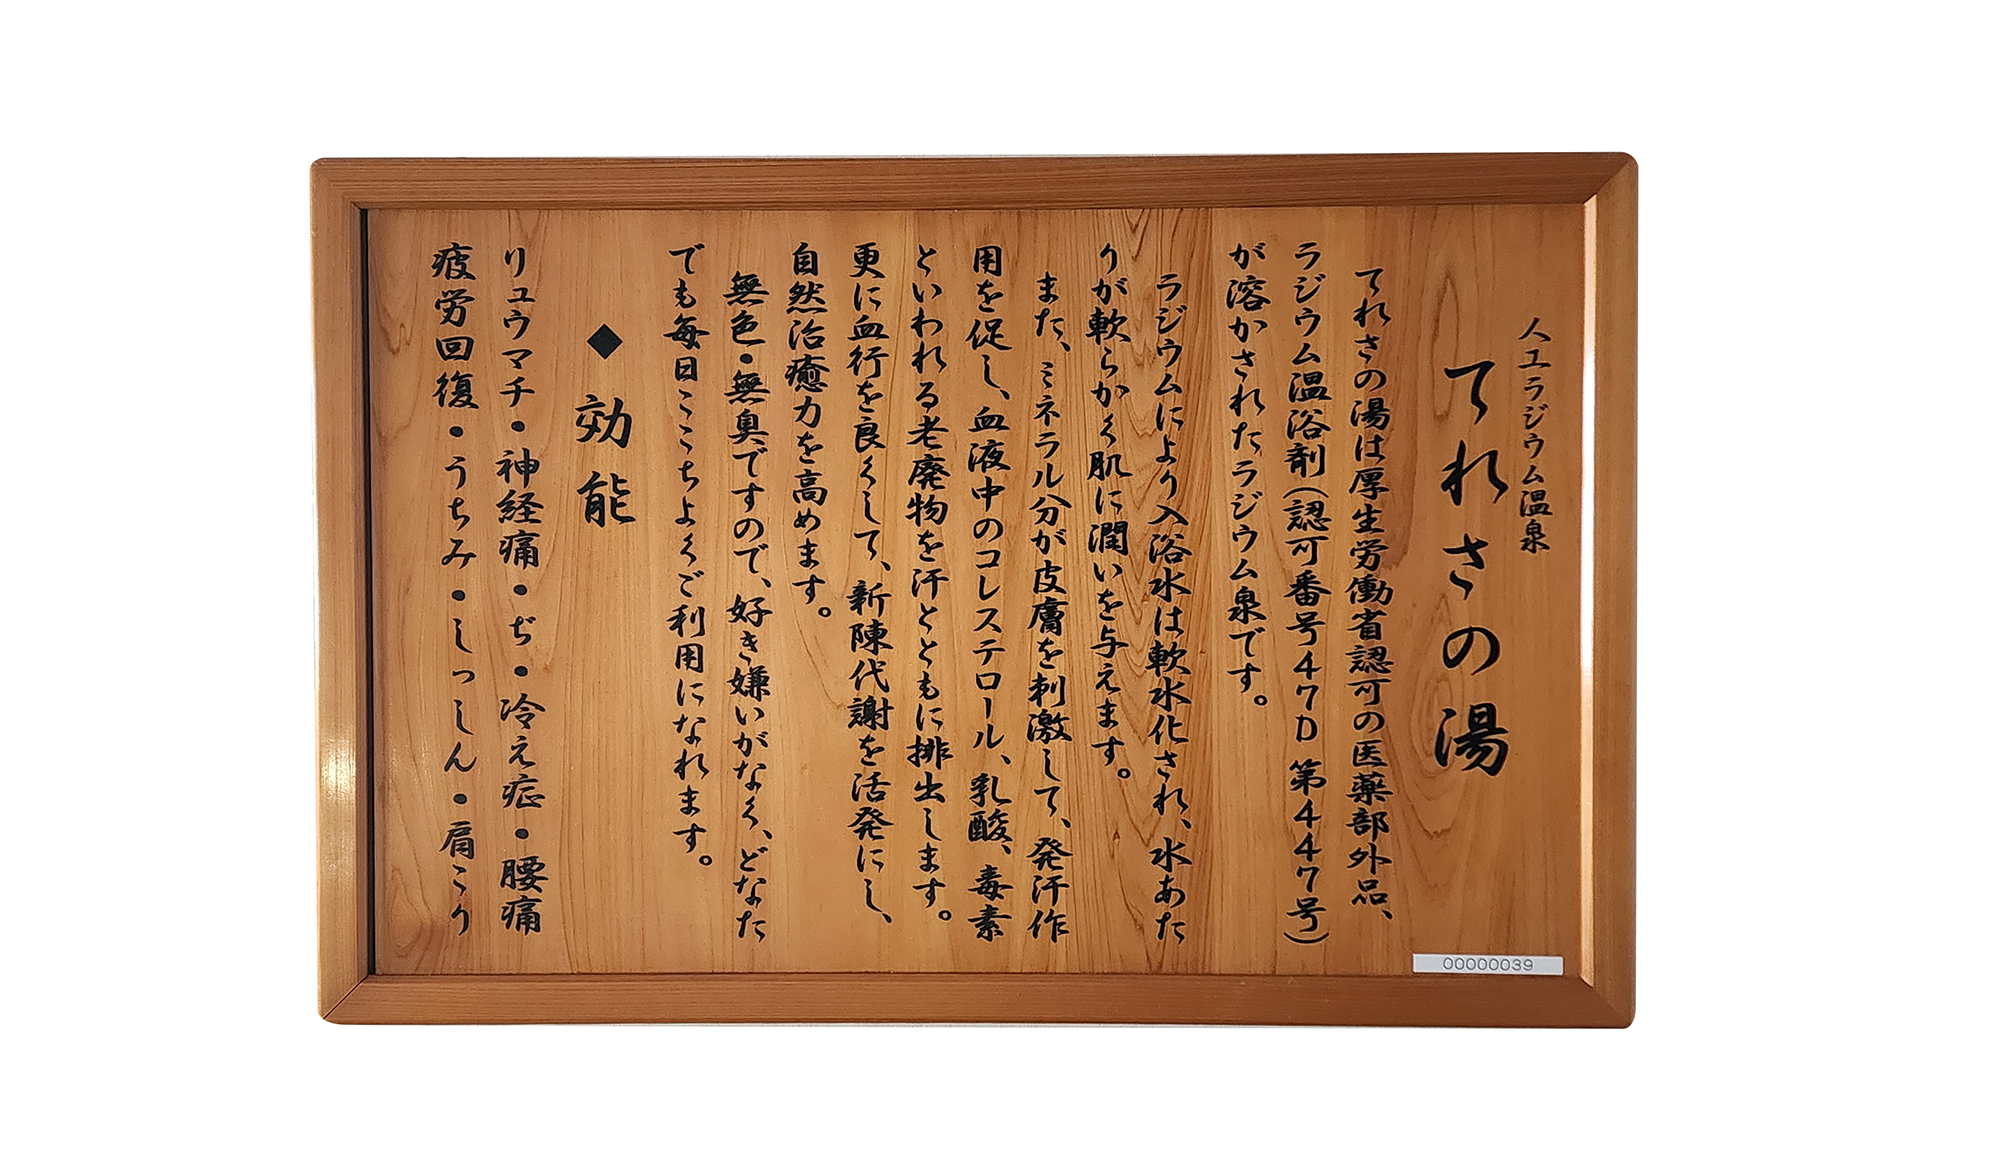 人工ラジウム温泉
てれさの湯
てれさの湯は厚生労働省認可の医薬部外品、
ラジウム温浴剤(認可番号47D第447号)
が溶かされたラジウム泉です。
ラジウムにより入浴水は軟水化され、水あた
りが軟らかく肌に潤いを与えます。
また、ミネラル分が皮膚を刺激して、発汗作
用を促し、血液中のコレステロール、乳酸、毒素
といわれる老廃物を汗とともに排出します。
更に血行を良くして、新陳代謝を活発にし、
自然治癒力を高めます。
無色・無臭ですので、好き嫌いがなく、どなた
でも毎日ここちよくご利用になれます。
◆効能
リュウマチ・神経痛・ぢ・冷え症・腰痛
疲労回復・うちみ・しっしん・肩こり
00000039